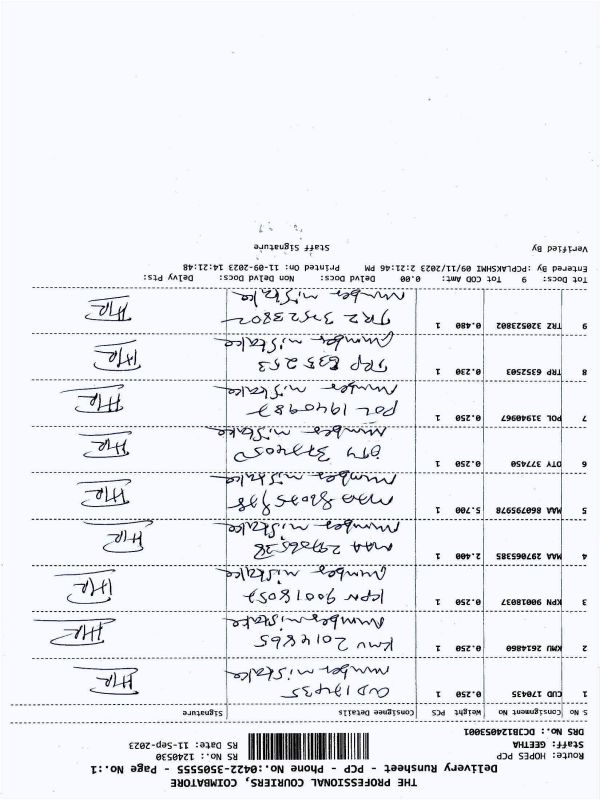 THE PROFESSIONAL COURIERS, COIMBATORE
Delivery Runsheet - PCP - Phone No.:0422-3505555 - Page No.:1
Route: HOPES PCP
RS No.: 1240530
Staff: GEETHA
RS Date: 11-Sep-2023
DRS No.: DCJB124053001
S No Consignment No Weight PCS Consignee Details Signature
1 CUD 170435 0.250 1
number mistake
2 KMU 2614860 0.250 1 KMU
number mistake
3 KPN 90018037 0.250 1 KPN 90018057
number mistake
4 MAA 297065385 2.400 1 MAA
number mistake
5 MAA 860795978 5.700 1 MAA
number mistake
6 OTY 377450 0.250 1 OTY
number mistake
7 POL 31940967 0.250 1 POL
number mistake
8 TRP 6352503 0.230 1 TRP 635253
number mistake
9 TRZ 320523802 0.480 1 TRZ
number mistake
Tot Docs: 9 Tot COD Amt: 0.00 Delvd Docs: Non Delvd Docs: Delvy Pts:
Entered By :PCPLAKSHMI 09/11/2023 2:21:46 PM Printed On: 11-09-2023 14:21:48
Verified By Staff Signature